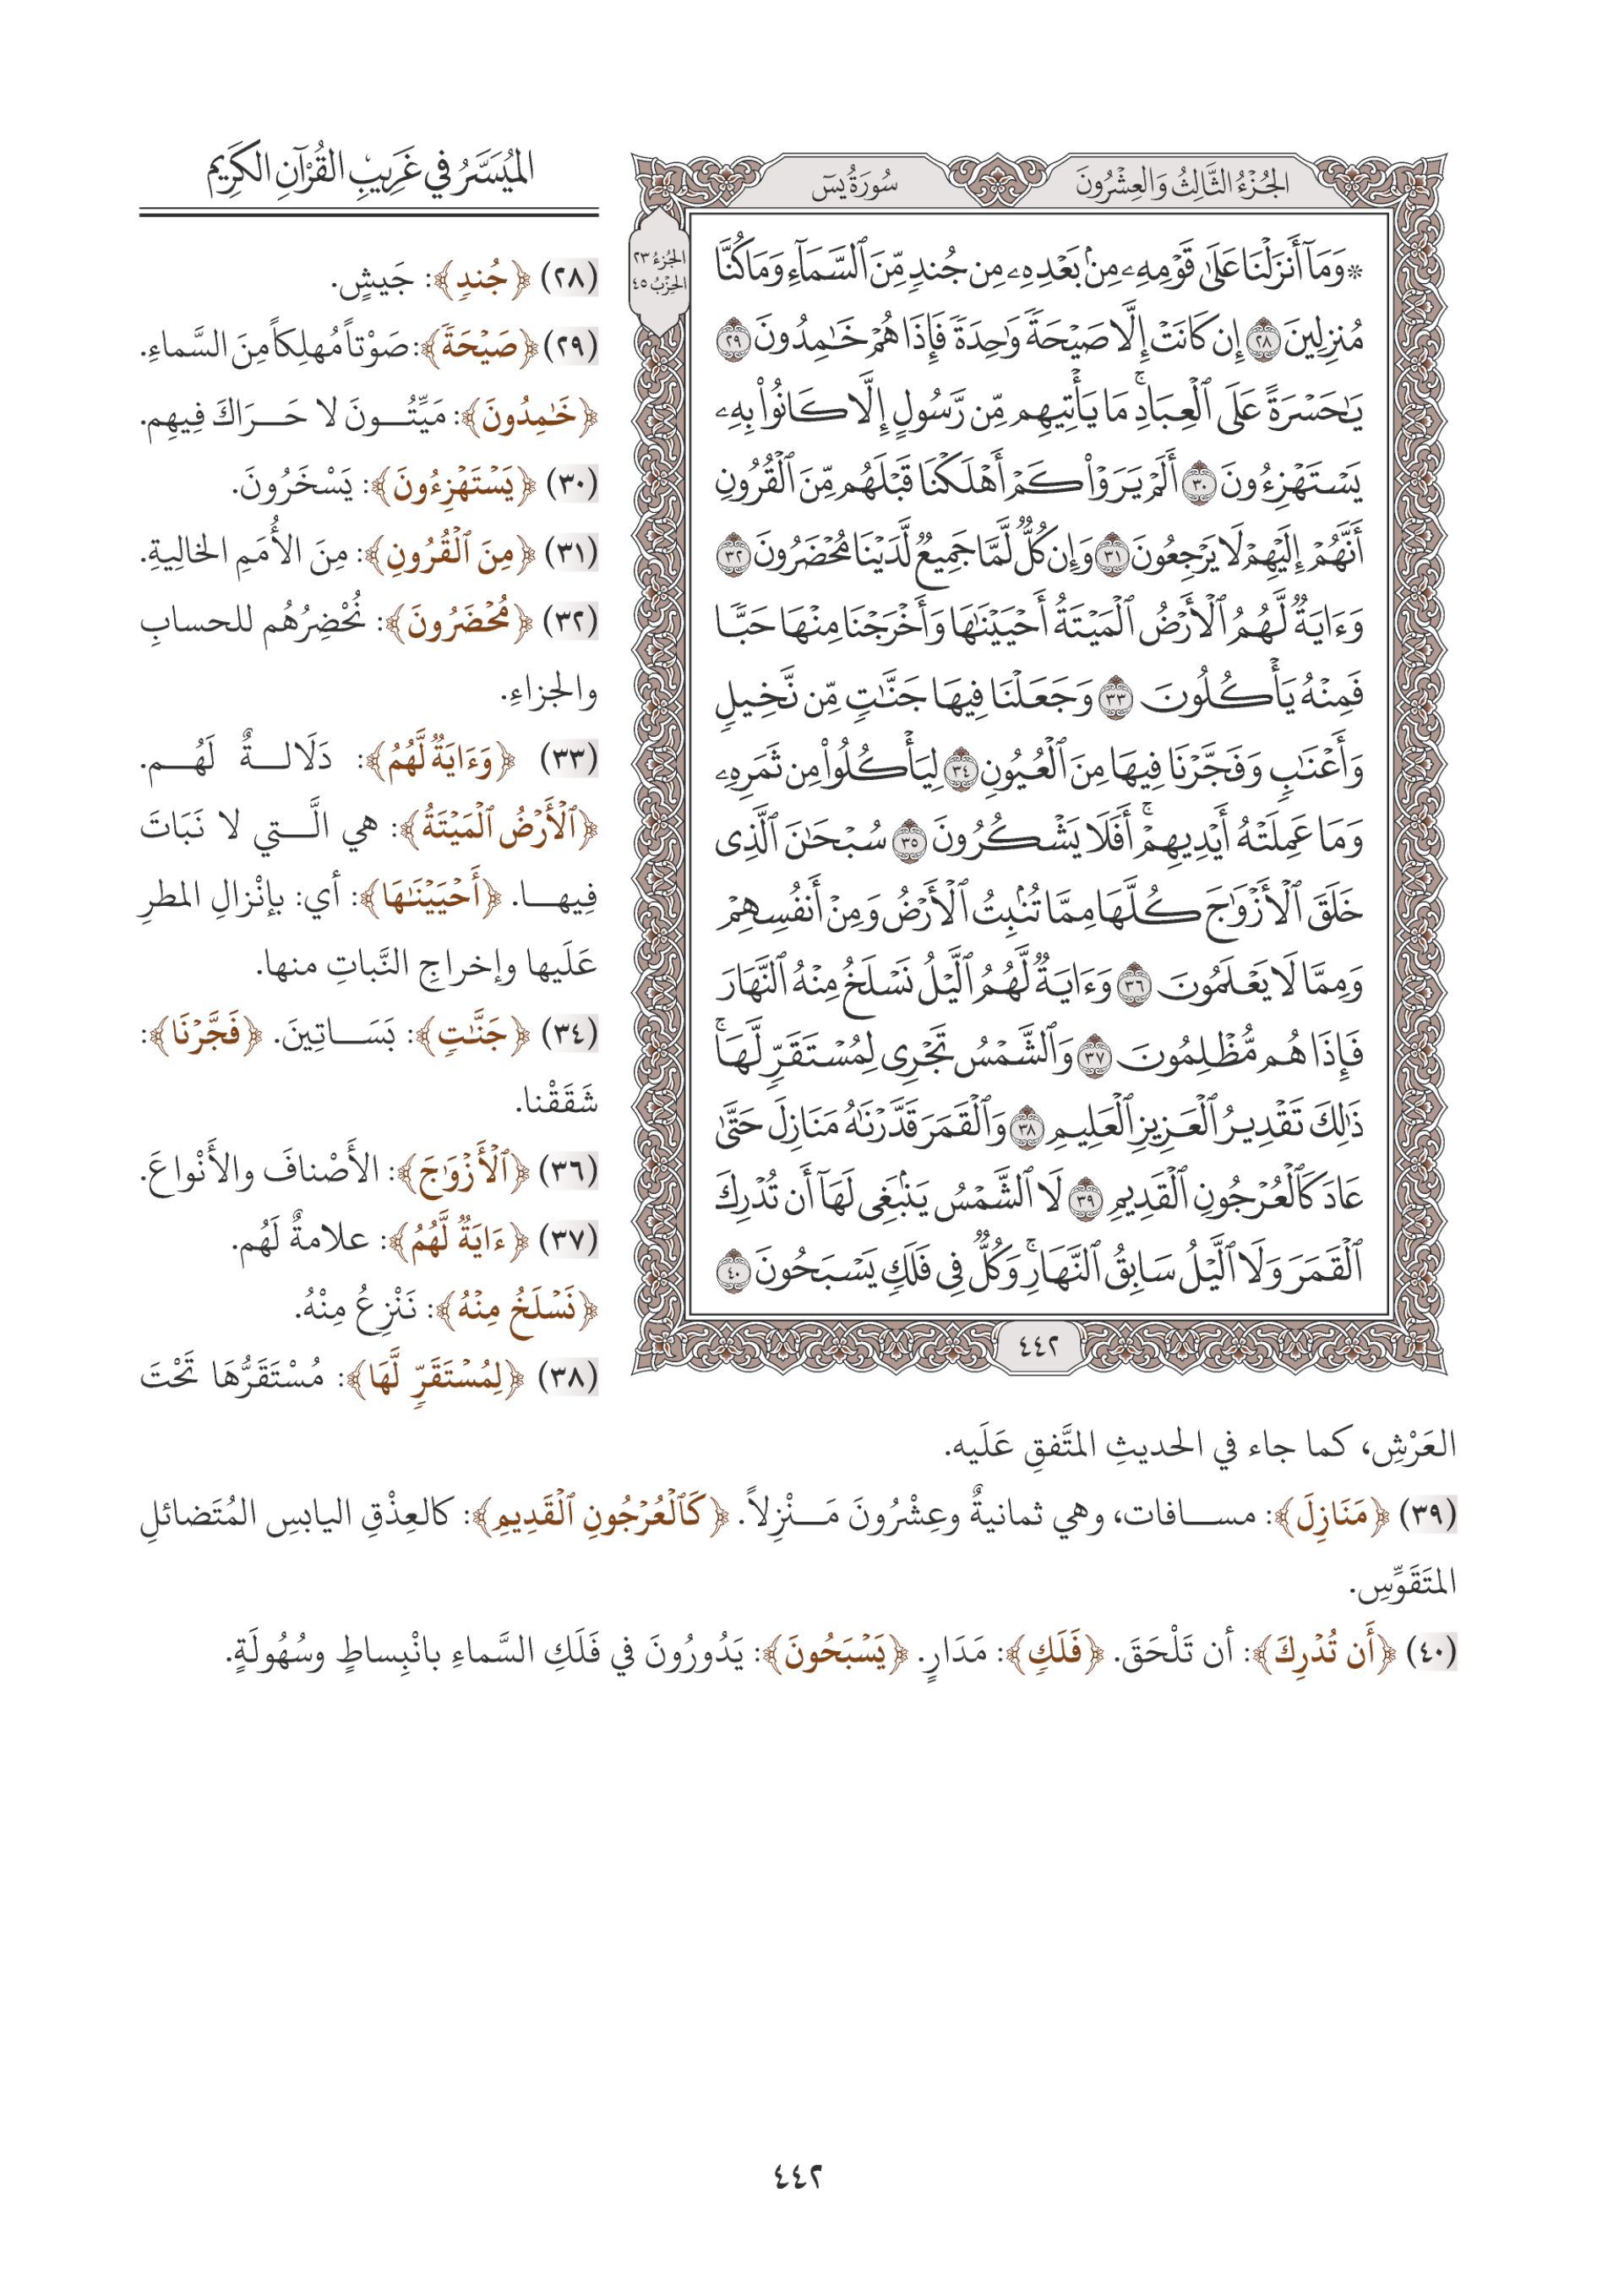 الجُزْءُ الثَّالِثُ وَالعِشْرُونَ
سُورَةُ يسٓ
الجُزءُ ٢٣
الحِزبُ ٤٥
۞ وَمَآ أَنزَلْنَا عَلَىٰ قَوْمِهِۦ مِنۢ بَعْدِهِۦ مِن جُندٍ مِّنَ ٱلسَّمَآءِ وَمَا كُنَّا
مُنزِلِينَ ٢٨ إِن كَانَتْ إِلَّا صَيْحَةً وَٰحِدَةً فَإِذَا هُمْ خَـٰمِدُونَ ٢٩
يَـٰحَسْرَةً عَلَى ٱلْعِبَادِ ۚ مَا يَأْتِيهِم مِّن رَّسُولٍ إِلَّا كَانُوا۟ بِهِۦ
يَسْتَهْزِءُونَ ٣٠ أَلَمْ يَرَوْا۟ كَمْ أَهْلَكْنَا قَبْلَهُم مِّنَ ٱلْقُرُونِ
أَنَّهُمْ إِلَيْهِمْ لَا يَرْجِعُونَ ٣١ وَإِن كُلٌّ لَّمَّا جَمِيعٌ لَّدَيْنَا مُحْضَرُونَ ٣٢
وَءَايَةٌ لَّهُمُ ٱلْأَرْضُ ٱلْمَيْتَةُ أَحْيَيْنَـٰهَا وَأَخْرَجْنَا مِنْهَا حَبًّا
فَمِنْهُ يَأْكُلُونَ ٣٣ وَجَعَلْنَا فِيهَا جَنَّـٰتٍ مِّن نَّخِيلٍ
وَأَعْنَـٰبٍ وَفَجَّرْنَا فِيهَا مِنَ ٱلْعُيُونِ ٣٤ لِيَأْكُلُوا۟ مِن ثَمَرِهِۦ
وَمَا عَمِلَتْهُ أَيْدِيهِمْ ۚ أَفَلَا يَشْكُرُونَ ٣٥ سُبْحَـٰنَ ٱلَّذِى
خَلَقَ ٱلْأَزْوَٰجَ كُلَّهَا مِمَّا تُنۢبِتُ ٱلْأَرْضُ وَمِنْ أَنفُسِهِمْ
وَمِمَّا لَا يَعْلَمُونَ ٣٦ وَءَايَةٌ لَّهُمُ ٱلَّيْلُ نَسْلَخُ مِنْهُ ٱلنَّهَارَ
فَإِذَا هُم مُّظْلِمُونَ ٣٧ وَٱلشَّمْسُ تَجْرِى لِمُسْتَقَرٍّ لَّهَا ۚ
ذَٰلِكَ تَقْدِيرُ ٱلْعَزِيزِ ٱلْعَلِيمِ ٣٨ وَٱلْقَمَرَ قَدَّرْنَـٰهُ مَنَازِلَ حَتَّىٰ
عَادَ كَٱلْعُرْجُونِ ٱلْقَدِيمِ ٣٩ لَا ٱلشَّمْسُ يَنۢبَغِى لَهَآ أَن تُدْرِكَ
ٱلْقَمَرَ وَلَا ٱلَّيْلُ سَابِقُ ٱلنَّهَارِ ۚ وَكُلٌّ فِى فَلَكٍ يَسْبَحُونَ ٤٠
٤٤٢
المُيَسَّرُ في غَرِيبِ القُرْآنِ الكَرِيم
(٢٨) ﴿جُندٍ﴾: جَيشٍ.
(٢٩) ﴿صَيْحَةً﴾: صَوْتاً مُهلِكاً مِنَ السَّماءِ.
﴿خَـٰمِدُونَ﴾: مَيِّتُـونَ لا حَـرَاكَ فِيهِم.
(٣٠) ﴿يَسْتَهْزِءُونَ﴾: يَسْخَرُونَ.
(٣١) ﴿مِنَ ٱلْقُرُونِ﴾: مِنَ الأُمَمِ الخالِيةِ.
(٣٢) ﴿مُحْضَرُونَ﴾: نُحْضِرُهُم للحسابِ
والجزاءِ.
(٣٣) ﴿وَءَايَةٌ لَّهُمُ﴾: دَلَالـةٌ لَهُـم.
﴿ٱلْأَرْضُ ٱلْمَيْتَةُ﴾: هي الَّـتي لا نَبَاتَ
فِيهـا. ﴿أَحْيَيْنَـٰهَا﴾: أي: بإنْزالِ المطرِ
عَلَيها وإخراجِ النَّباتِ منها.
(٣٤) ﴿جَنَّـٰتٍ﴾: بَسَـاتِينَ. ﴿فَجَّرْنَا﴾:
شَقَقْنا.
(٣٦) ﴿ٱلْأَزْوَٰجَ﴾: الأَصْنافَ والأَنْواعَ.
(٣٧) ﴿ءَايَةٌ لَّهُمُ﴾: علامةٌ لَهُم.
﴿نَسْلَخُ مِنْهُ﴾: نَنْزِعُ مِنْهُ.
(٣٨) ﴿لِمُسْتَقَرٍّ لَّهَا﴾: مُسْتَقَرُّهَا تَحْتَ
العَرْشِ، كما جاء في الحديثِ المتَّفقِ عَلَيه.
(٣٩) ﴿مَنَازِلَ﴾: مسـافات، وهي ثمانيةٌ وعِشْرُونَ مَـنْزِلاً. ﴿كَٱلْعُرْجُونِ ٱلْقَدِيمِ﴾: كالعِذْقِ اليابسِ المُتَضائلِ
المتَقَوِّسِ.
(٤٠) ﴿أَن تُدْرِكَ﴾: أن تَلْحَقَ. ﴿فَلَكٍ﴾: مَدَارٍ. ﴿يَسْبَحُونَ﴾: يَدُورُونَ في فَلَكِ السَّماءِ بانْبِساطٍ وسُهُولَةٍ.
٤٤٢